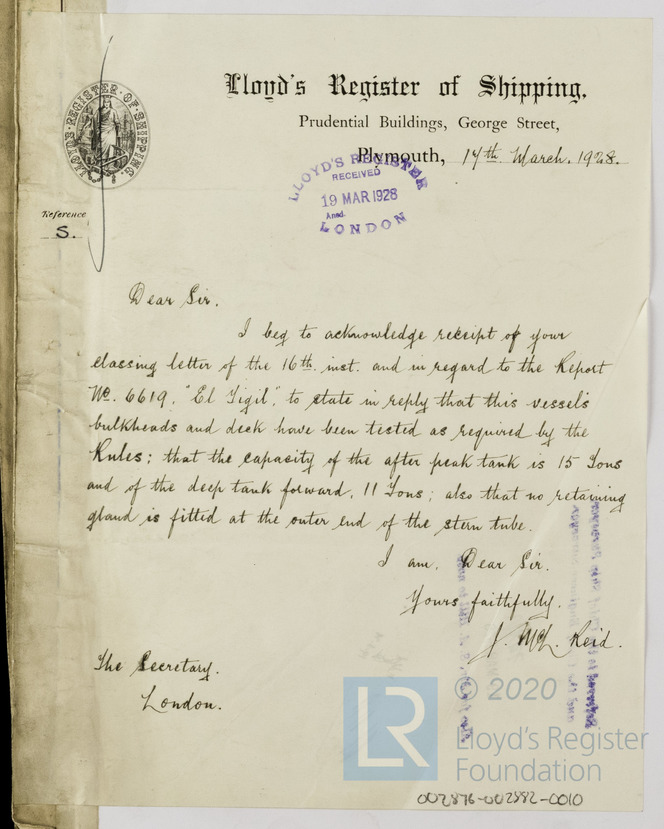 Lloyd's Register of Shipping,
Prudential Buildings, George Street,
Plymouth, 17th March. 1928.
LLOYD'S REGISTER OF SHIPPING.
LLOYD'S REGISTER
RECEIVED
19 MAR 1928
Ansd.
LONDON
Reference
S.
Dear Sir.
I beg to acknowledge receipt of your
classing letter of the 16th. inst. and in regard to the Report
No. 6619, "El Sigil", to state in reply that this vessel's
bulkheads and deck have been tested as required by the
Rules; that the capacity of the after peak tank is 15 Tons
and of the deep tank forward, 11 Tons; also that no retaining
gland is fitted at the outer end of the stern tube.
I am, Dear Sir.
Yours faithfully.
J. McL. Reid.
The Secretary.
London.
LR © 2020
Lloyd's Register
Foundation
002876-002882-0010